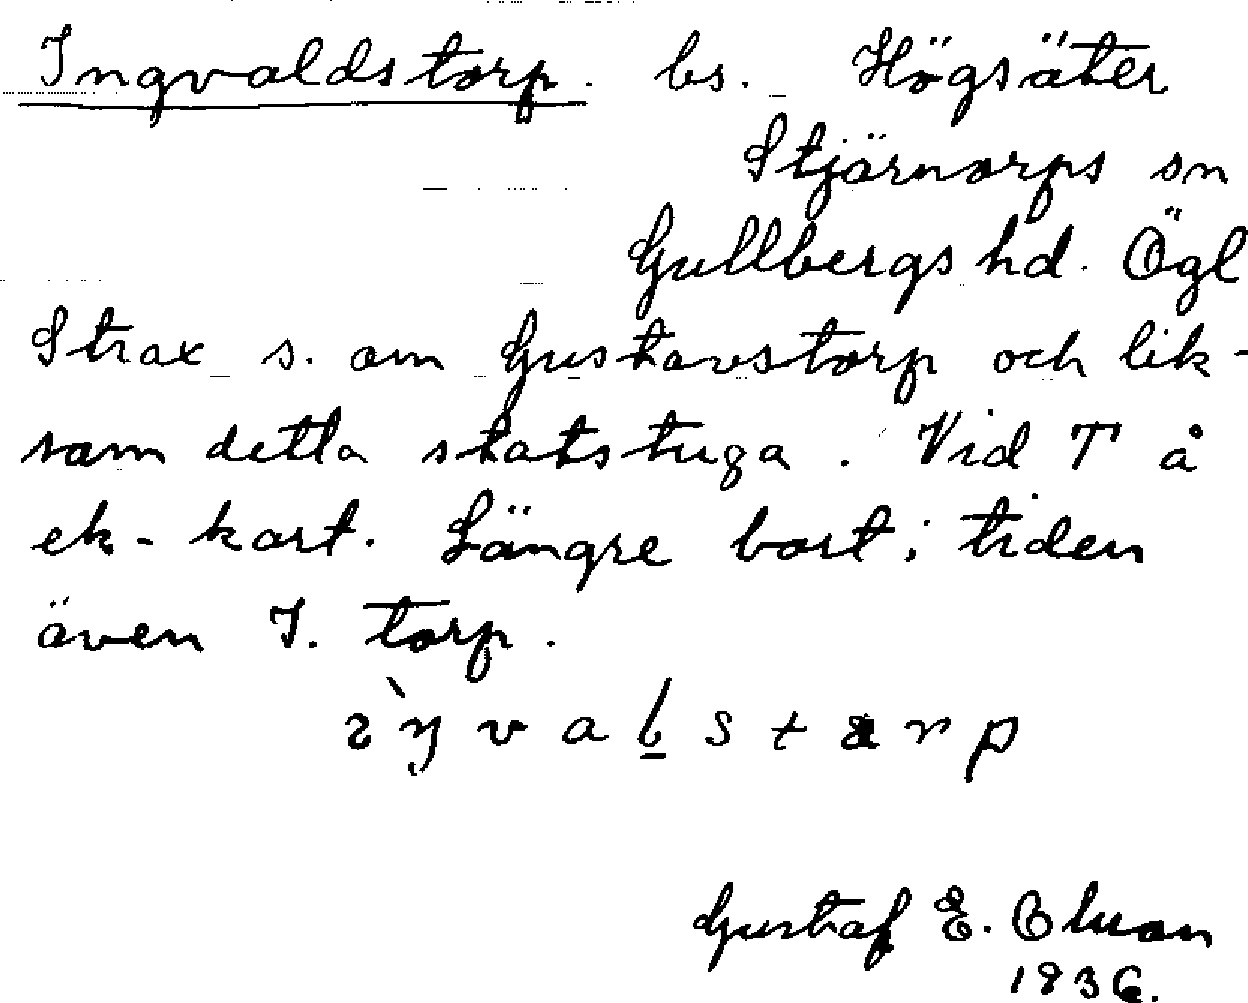 Ingvaldstorp. bs. Högsäter
Stjärnorps sn
Gullbergs hd. Ögl
Strax s. om Gustavstorp och lik-
som detta statstuga. Vid T å
ek-kart. Längre bort i tiden
även I. torp.
Gustaf E.
1936.